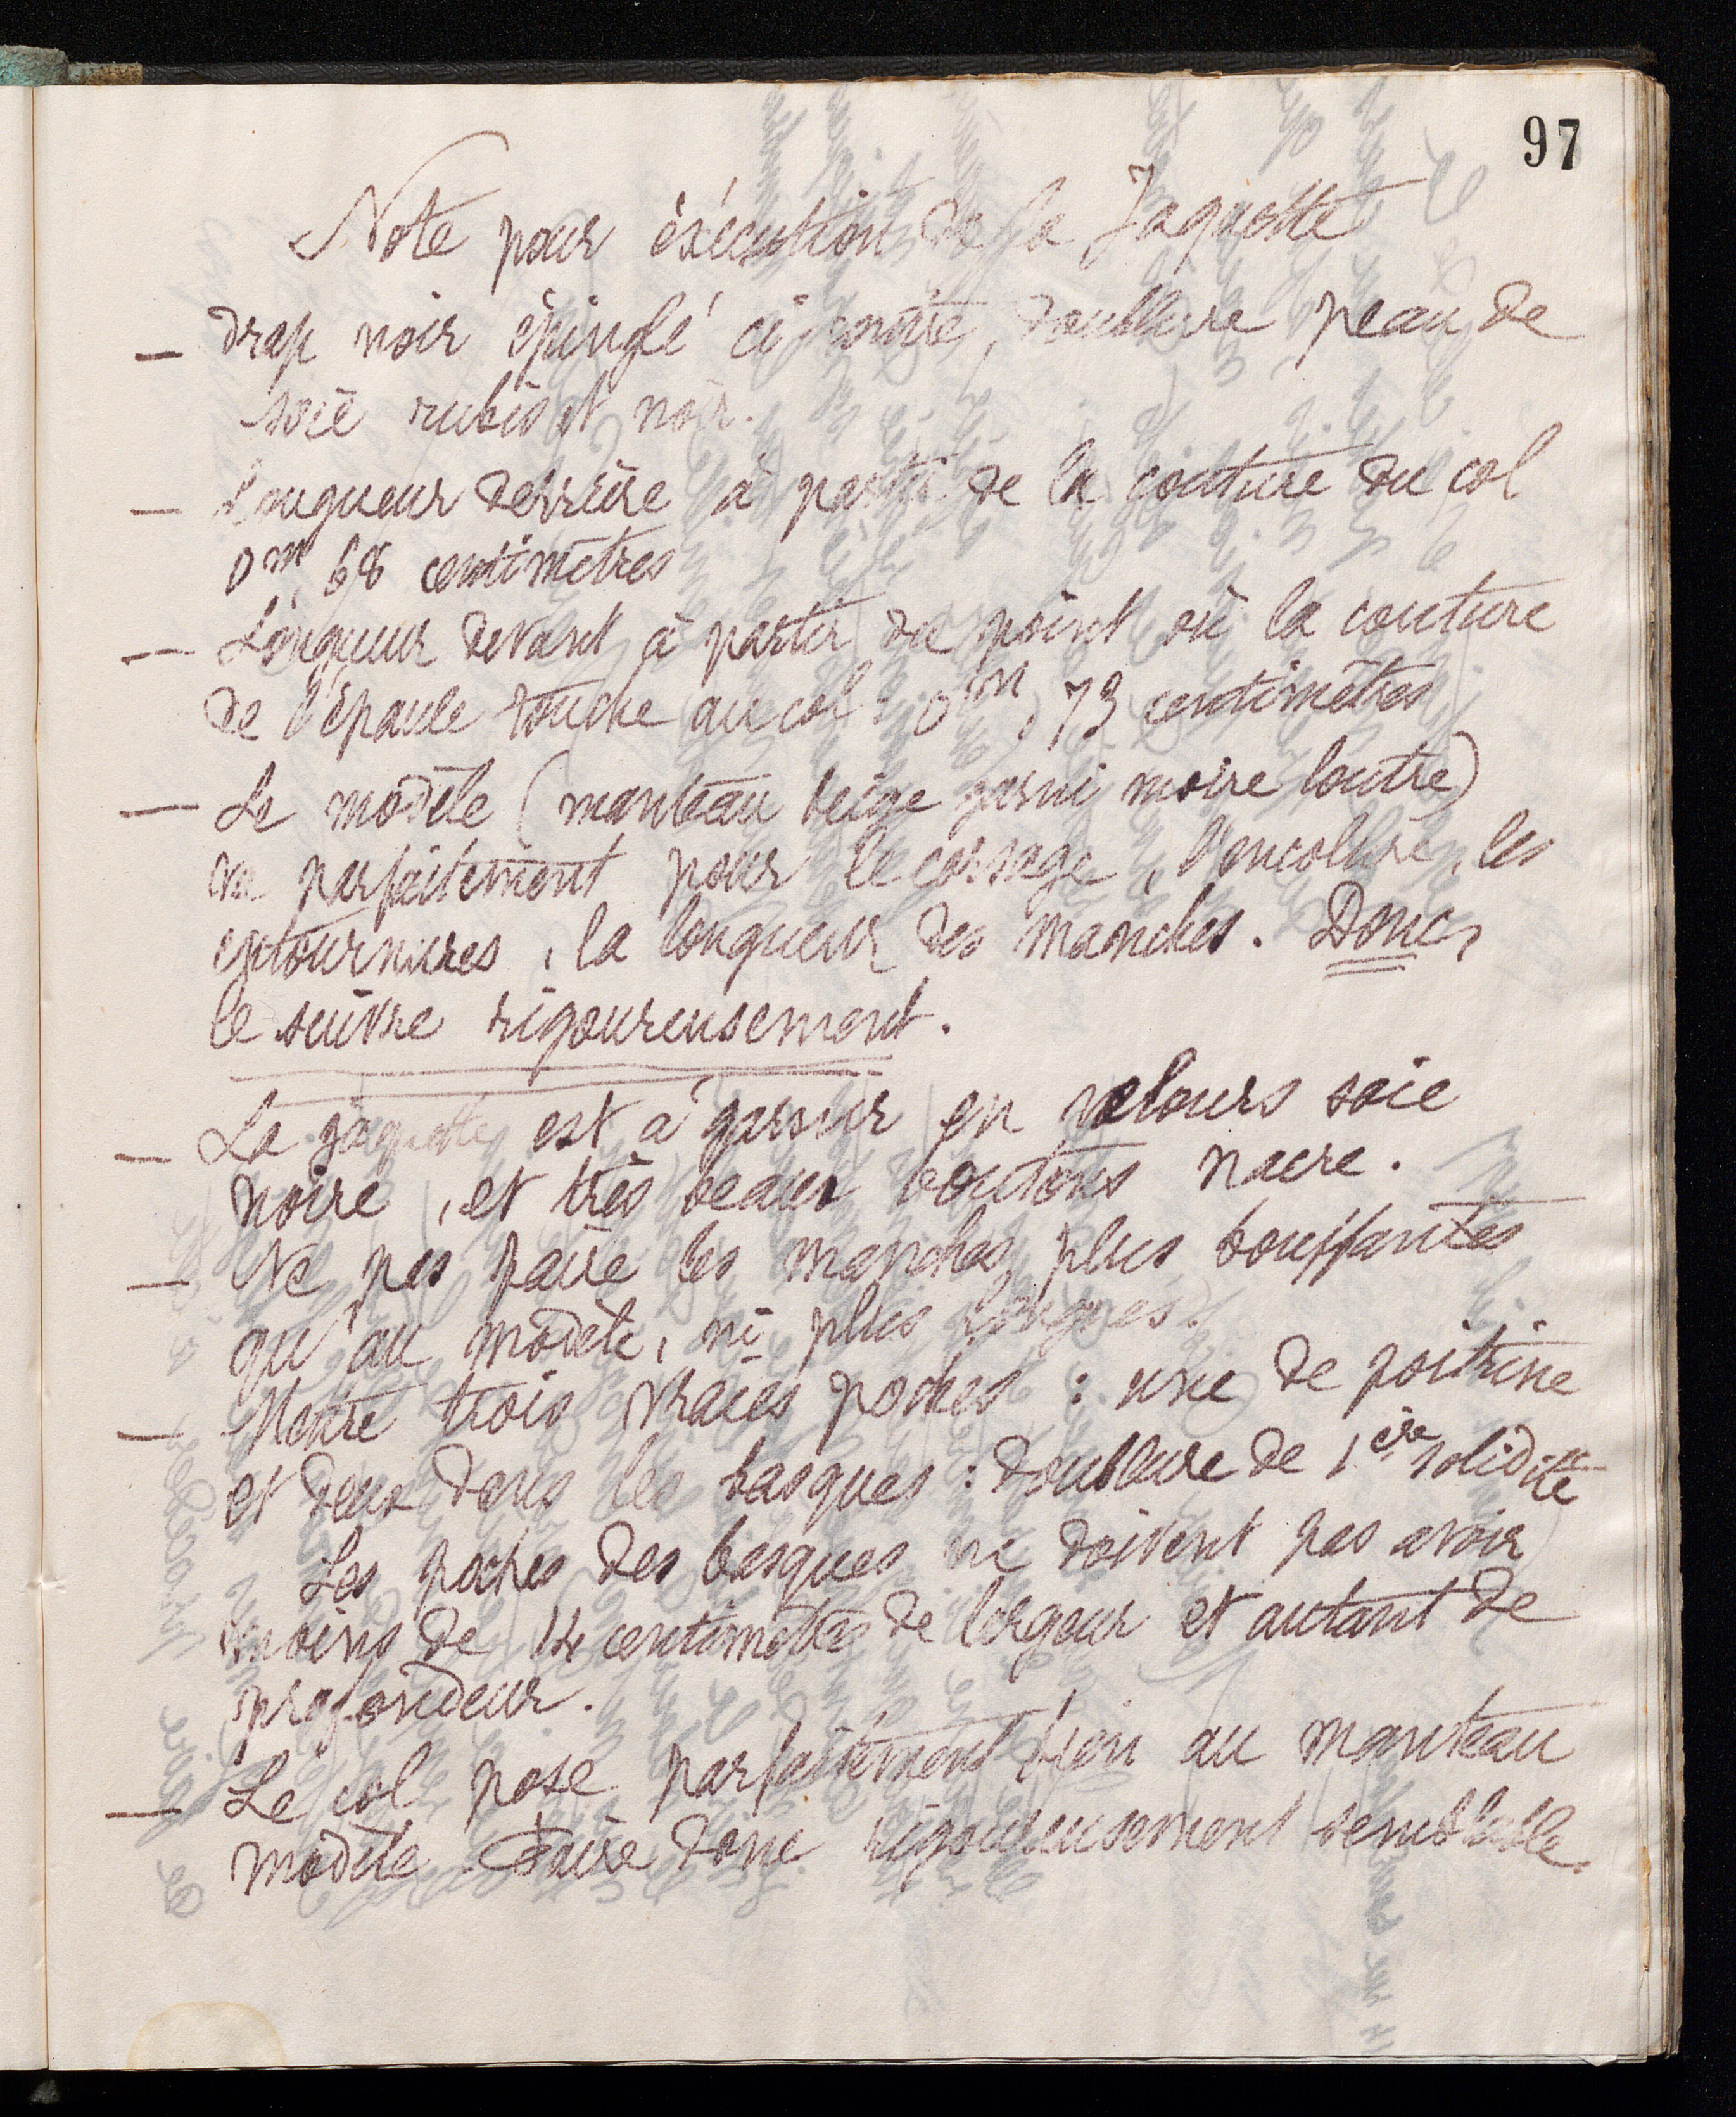 97
Note pour éxécution de la Jaquette
— drap noir épinglé ci contre, doublure peau de
soie rubis et noir.
— Longueur derrière à partir de la couture du col
0m, 68 centimètres
— Longueur devant à partir du point où la couture
de l'épaule touche au col : 0m, 73 centimètres
— Le modèle (manteau beige garni moire loutre)
va parfaitement pour le corsage, l'encolure, les
entournures, la longueur des manches. Donc,
le suivre rigoureusement.
— La jaquette est à garnir en velours soie
noire, et très beaux boutons nacre.
— Ne pas faire les manches plus bouffantes
qu'au modèle, ni plus longues.
— Mettre trois vraies poches : une de poitrine
et deux dans les basques : doublure de 1ère solidité
Les poches des basques ne doivent pas avoir
moins de 14 centimètres de largeur et autant de
profondeur.
— Le col pose parfaitement bien au manteau
modèle. Faire donc rigoureusement semblable.